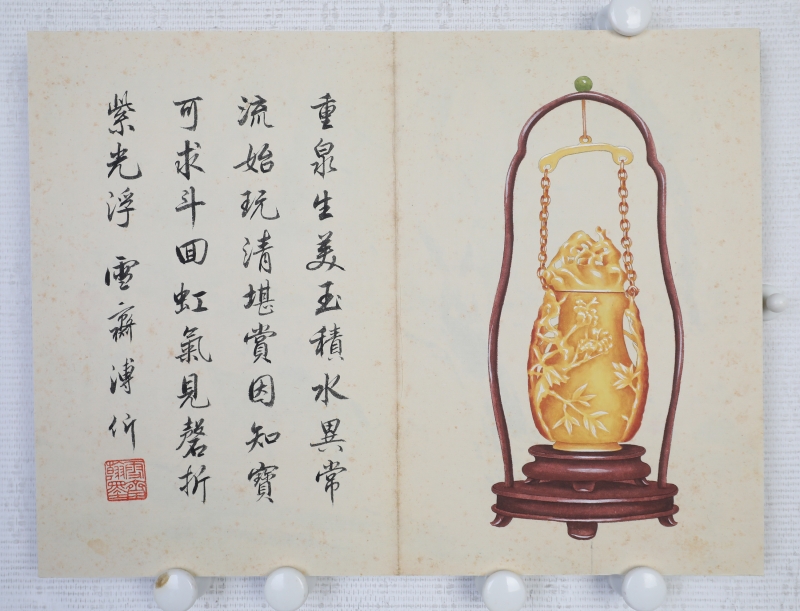 重泉生美玉積水異常
流始玩清堪賞因知寶
可求斗回虹氣見磬折
紫光浮 雪齋溥伒